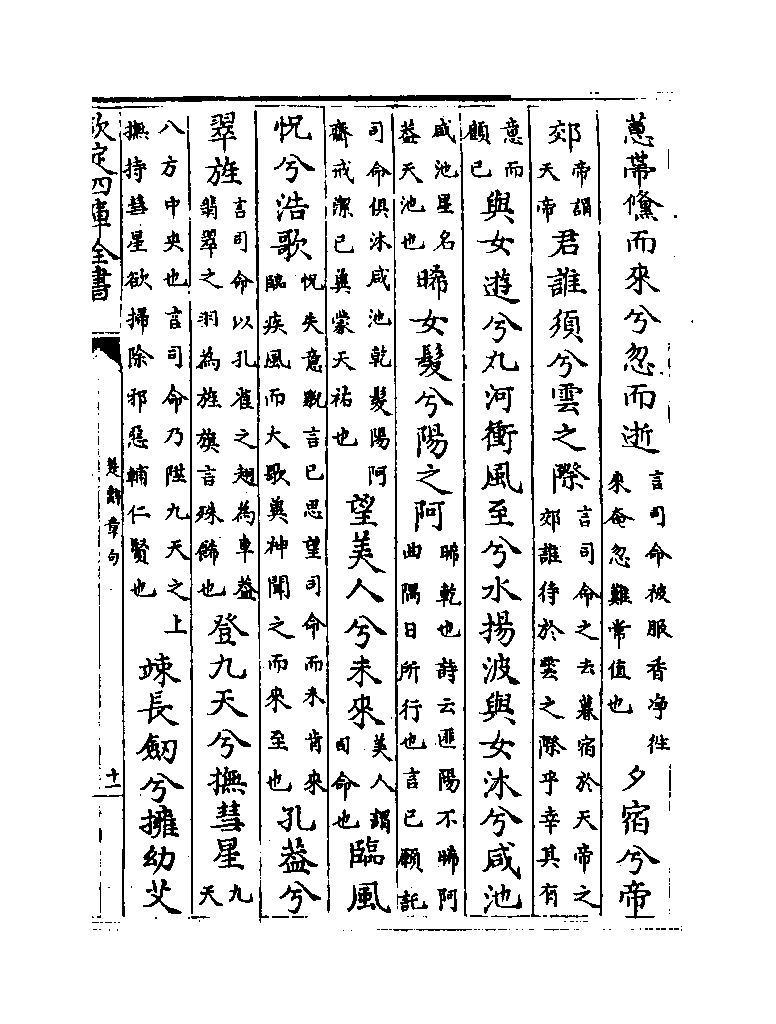 蕙蔕儵而來兮忽而逝言司命被服香净徃來奄忽難常值也夕宿兮帝
郊帝謂天帝君誰須兮雲之際言司命之去暮宿於天帝之郊誰待於雲之際乎幸其有
意而顧已與女遊兮九河衝風至兮水揚波與女沐兮咸池
咸池星名葢天池也晞女髮兮陽之阿晞乾也詩云匪陽不晞阿曲隅日所行也言已願託
司命俱沐咸池乾髮陽阿齋戒潔已兾蒙天祐也望美人兮未來美人謂司命也臨風
怳兮浩歌怳失意貌言已思望司命而未肯來臨疾風而大歌兾神聞之而來至也孔葢兮
翠旍言司命以孔雀之翅為車葢翡翠之羽為旍旗言殊飾也登九天兮撫彗星九天
八方中央也言司命乃陞九天之上撫持彗星欲掃除邪惡輔仁賢也竦長劔兮擁幼艾
欽定四庫全書
楚辭章句
十一